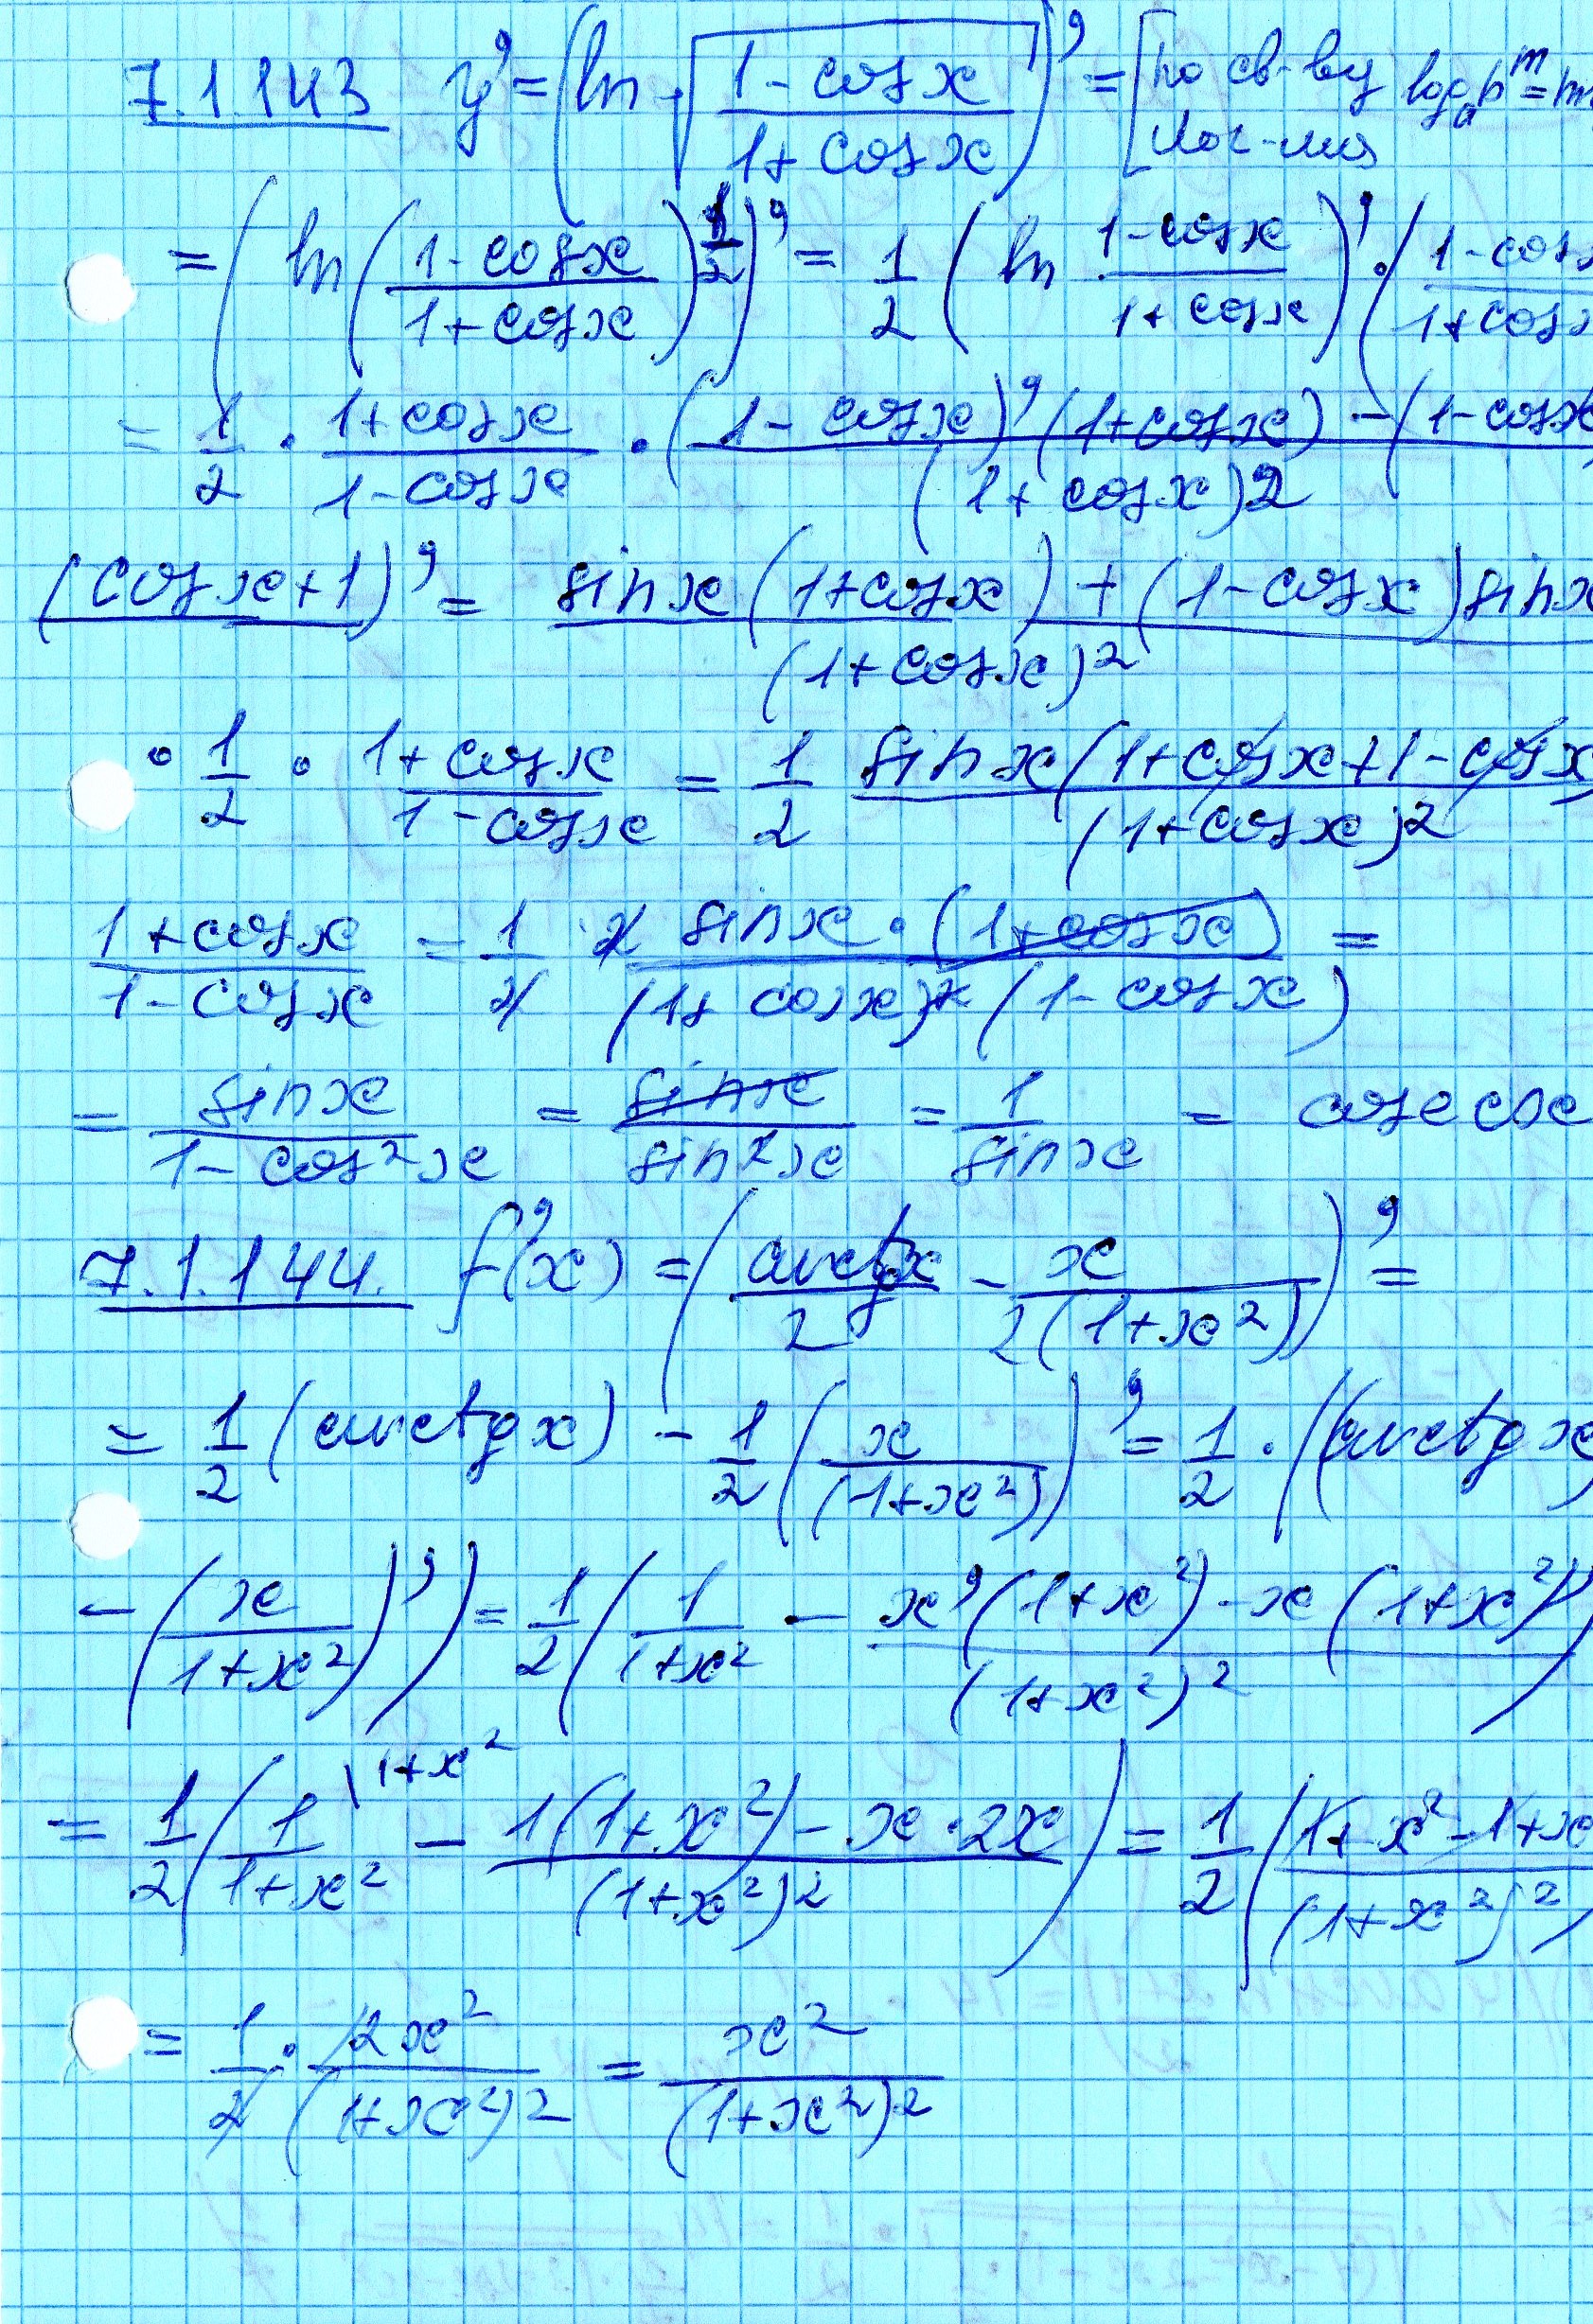 7.1.143 y' = (ln √((1-cosx)/(1+cosx)))' = [по св-ву лог-ма log_a b^m = m
= (ln((1-cosx)/(1+cosx))^(1/2))' = 1/2 (ln (1-cosx)/(1+cosx))' · ((1-cosx)/(1+cosx)
= 1/2 · (1+cosx)/(1-cosx) · ((1-cosx)'(1+cosx) - (1-cosx)/(1+cosx)2
(cosx+1)' = (sinx(1+cosx) + (1-cosx)sinx)/(1+cosx)²
· 1/2 · (1+cosx)/(1-cosx) = 1/2 sinx(1+cosx+1-cosx)/(1+cosx)²
(1+cosx)/(1-cosx) = 1/2 · 2 sinx·(1+cosx)/((1+cosx)²(1-cosx)) =
= sinx/(1-cos²x) = sinx/sin²x = 1/sinx = cosecx
7.1.144. f'(x) = (arctgx/2 - x/(2(1+x²)))' =
= 1/2 (arctgx) - 1/2 (x/(1+x²))' = 1/2 · ((arctgx)
- (x/(1+x²))') = 1/2 (1/(1+x²) - (x'(1+x²) - x(1+x²)')/(1+x²)²)
= 1/2 (1/(1+x²) \1+x² - (1(1+x²) - x·2x)/(1+x²)2) = 1/2 ((1+x²-1+x)/(1+x²)²)
= 1/2 · 2x²/(1+x²)2 = x²/(1+x²)2